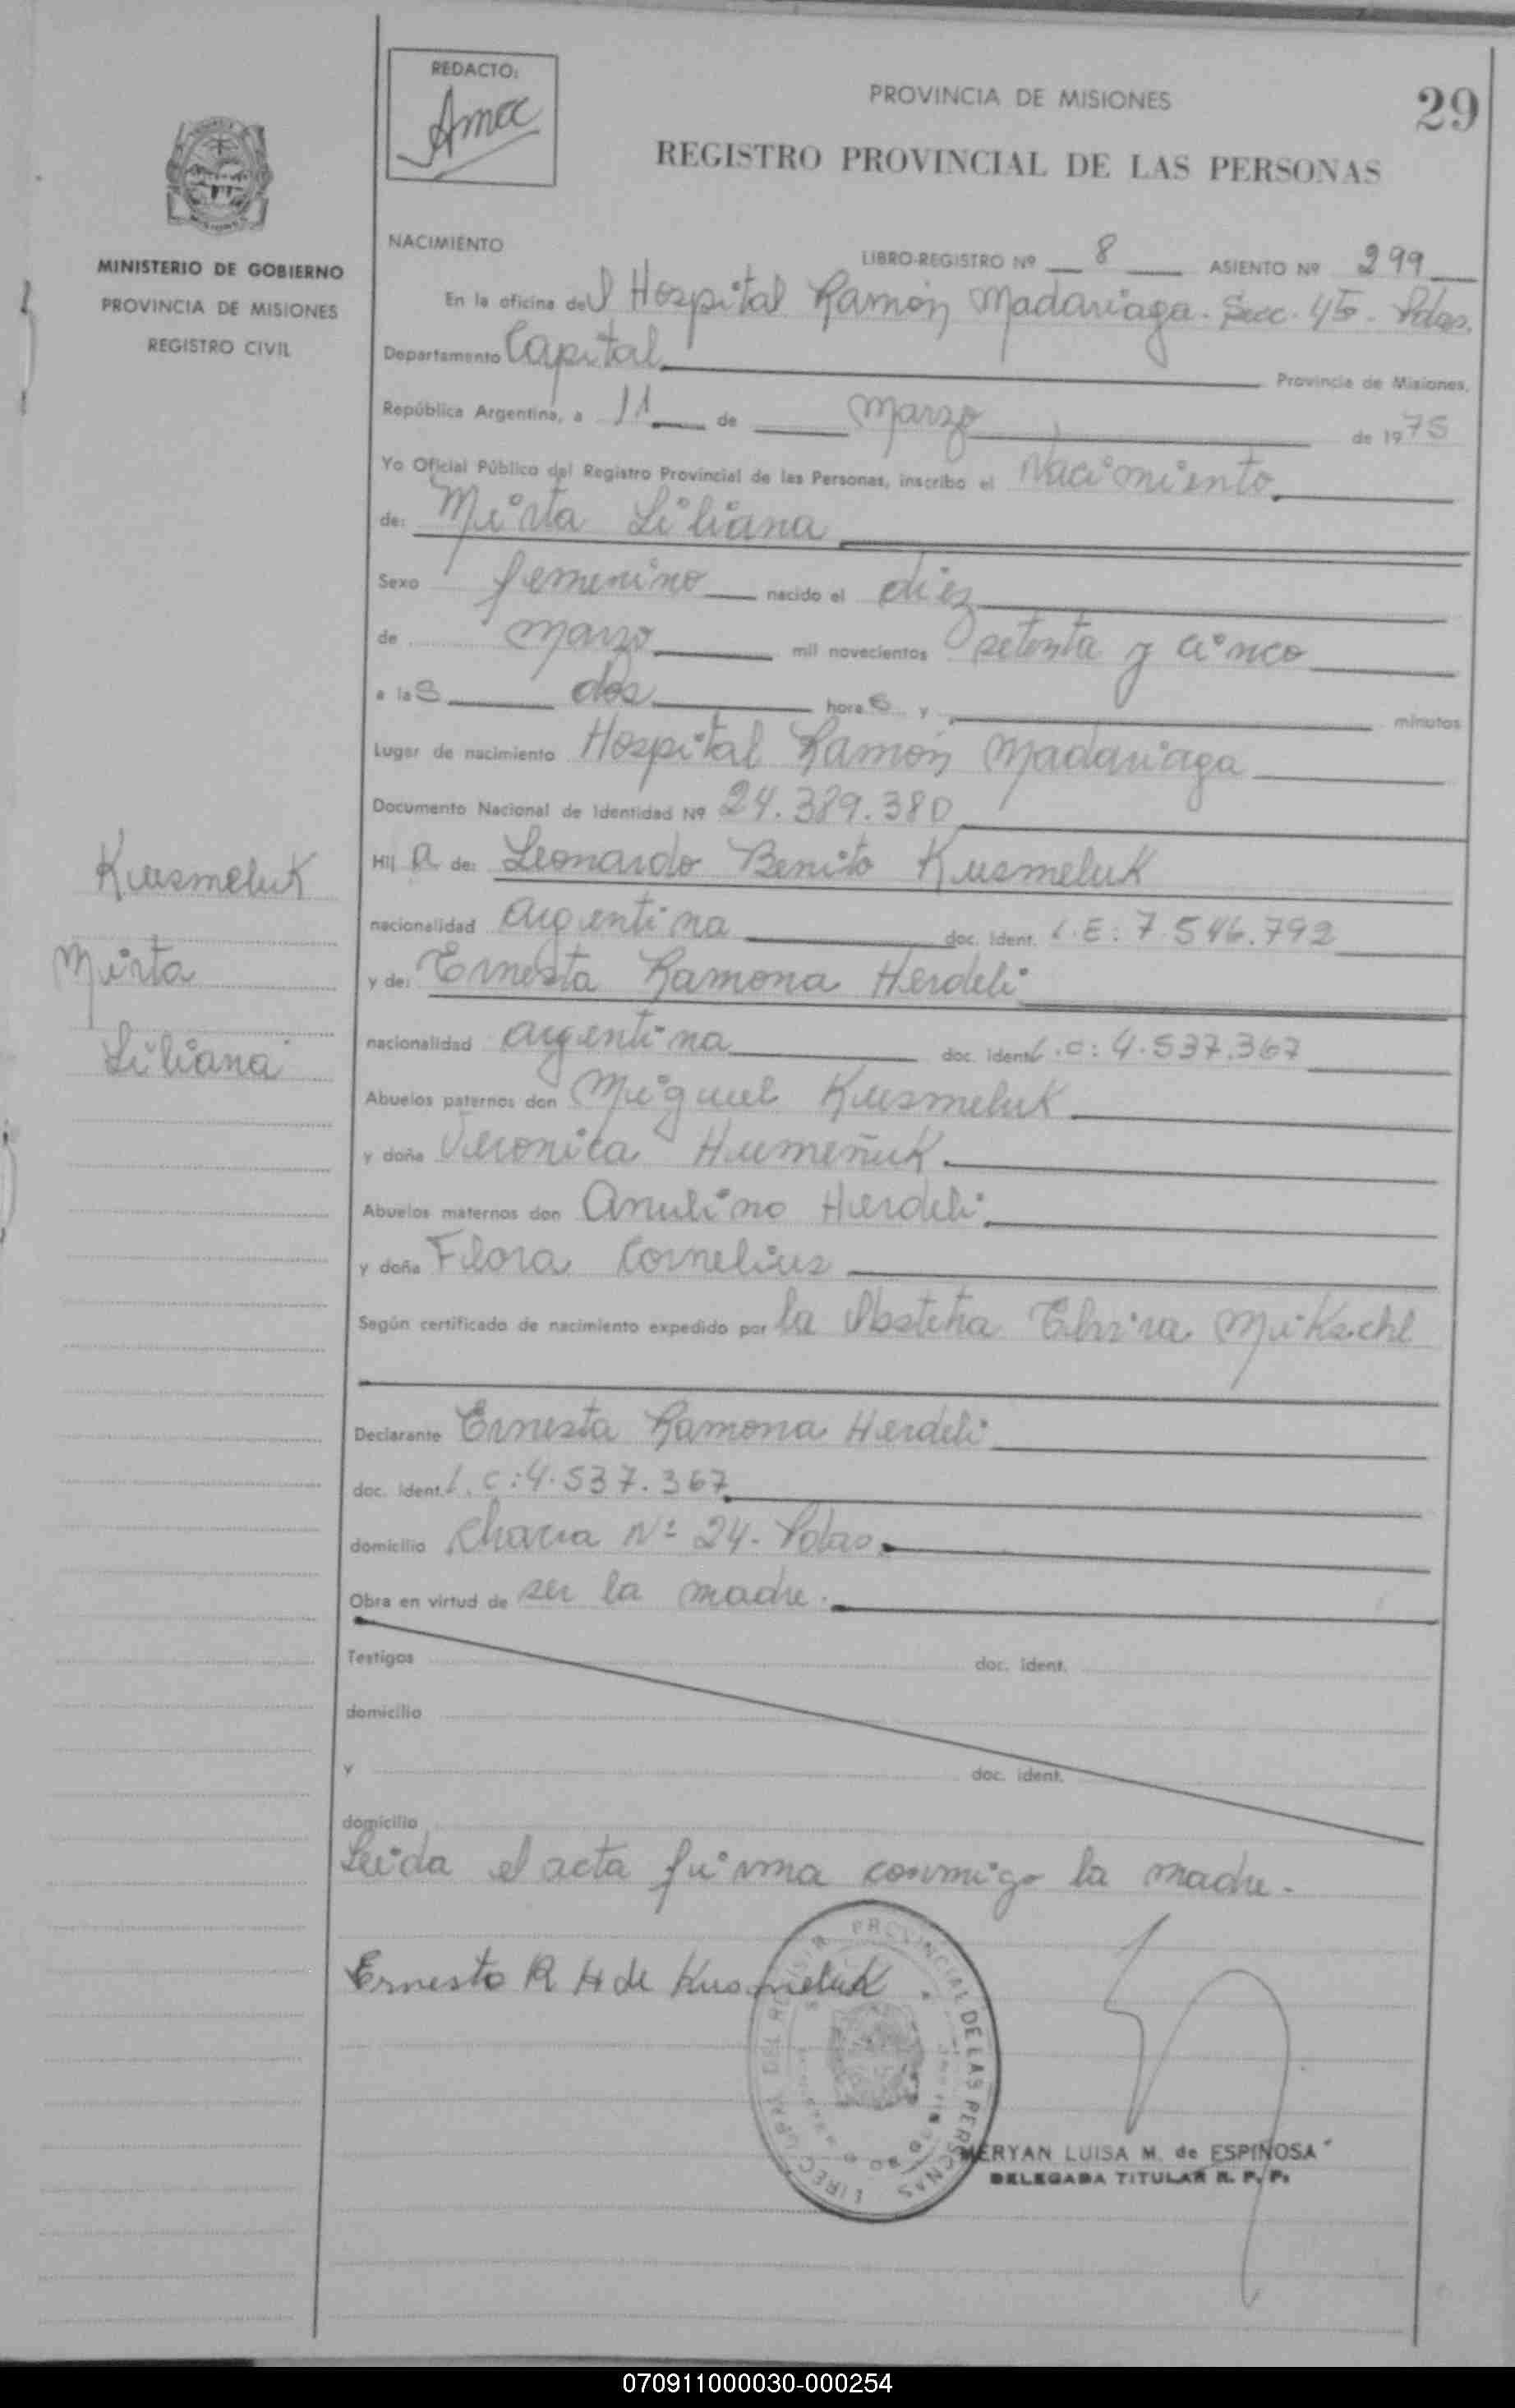 REDACTO:
PROVINCIA DE MISIONES
29
REGISTRO PROVINCIAL DE LAS PERSONAS
MINISTERIO DE GOBIERNO
PROVINCIA DE MISIONES
REGISTRO CIVIL
NACIMIENTO
LIBRO-REGISTRO Nº 8 ASIENTO Nº 299
En la oficina del Hospital Ramón Madariaga. Secc. 45. Pdas.
Departamento Capital Provincia de Misiones,
República Argentina, a 11 de Marzo de 1975
Yo Oficial Público del Registro Provincial de las Personas, inscribo el Nacimiento
de: Mirta Liliana
Sexo femenino nacido el diez
de marzo mil novecientos setenta y cinco
a las dos horas y minutos
Lugar de nacimiento Hospital Ramón Madariaga
Documento Nacional de Identidad Nº 24.389.380
Kusmeluk
Mirta
Liliana
Hij a de: Leonardo Benito Kusmeluk
nacionalidad argentina doc. ident. L.E: 7.546.792
y de: Ernesta Ramona Herdeli
nacionalidad argentina doc. ident L.C: 4.537.367
Abuelos paternos don Miguel Kusmeluk
y doña Veronica Humeñuk
Abuelos maternos don Anulino Herdeli
y doña Flora Cornelius
Según certificado de nacimiento expedido por la Obstetra Elvira
Declarante Ernesta Ramona Herdeli
doc. ident. L.C: 4.537.367
domicilio Chacra Nº 24. Pdas.
Obra en virtud de ser la madre.
Testigos doc. ident.
domicilio
y doc. ident.
domicilio
Leida el acta firma conmigo la madre.
Ernesta R H de Kusmeluk
PROVINCIAL DE LAS PERSONAS
MERYAN LUISA M. de ESPINOSA
DELEGADA TITULAR R. P. P.
070911000030-000254